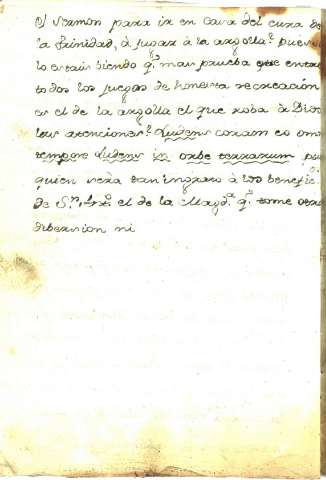 el sermon para ir en casa del cura de
la trinidad, à jugar à la argolla? pues
lo estais biendo q.e mas prueba que entre
todos los juegos de honesta recreacion
es el de la argolla el que roba à Dios
sus atenciones? Ludens coram eo omni
tempore Ludens in orbe terrarum pues
quien será tan ingrato à los benefic.
de S.r el de la Magd.a q.e tome otra
dibersion ni